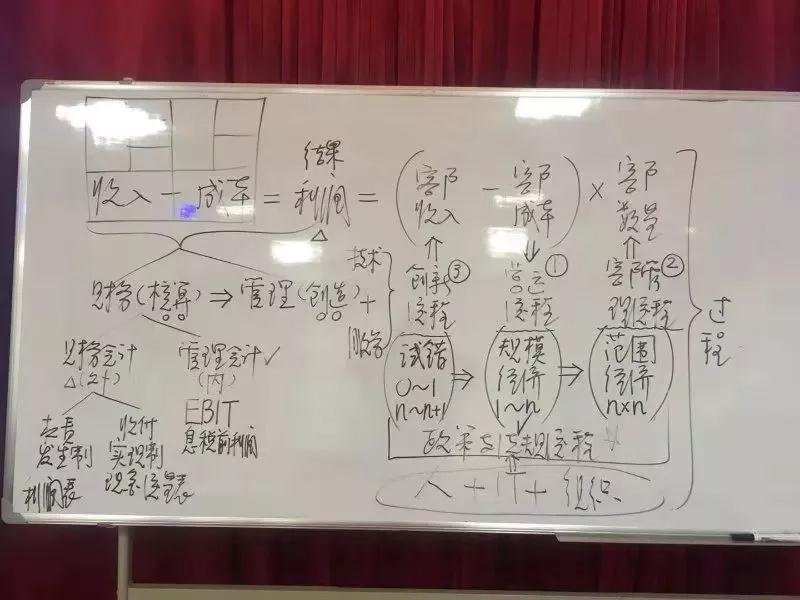 结果
收入 - 成本 = 利润 = (客户收入 - 客户成本) × 客户数量
△
↑ ↓ ↑
财务(核算) ⇒ 管理(创造) +
技术
服务
创新流程 ③
营运流程 ①
客户管理流程 ②
过程
财务会计
△(外)
管理会计 ✓
(内)
EBIT
息税前利润
权责发生制
利润表
收付实现制
现金流量表
试错
0~1
n~n+1
⇒
规模经济
1~n
⇒
范围经济
n×n
政策与法规流程
人 + IT + 组织